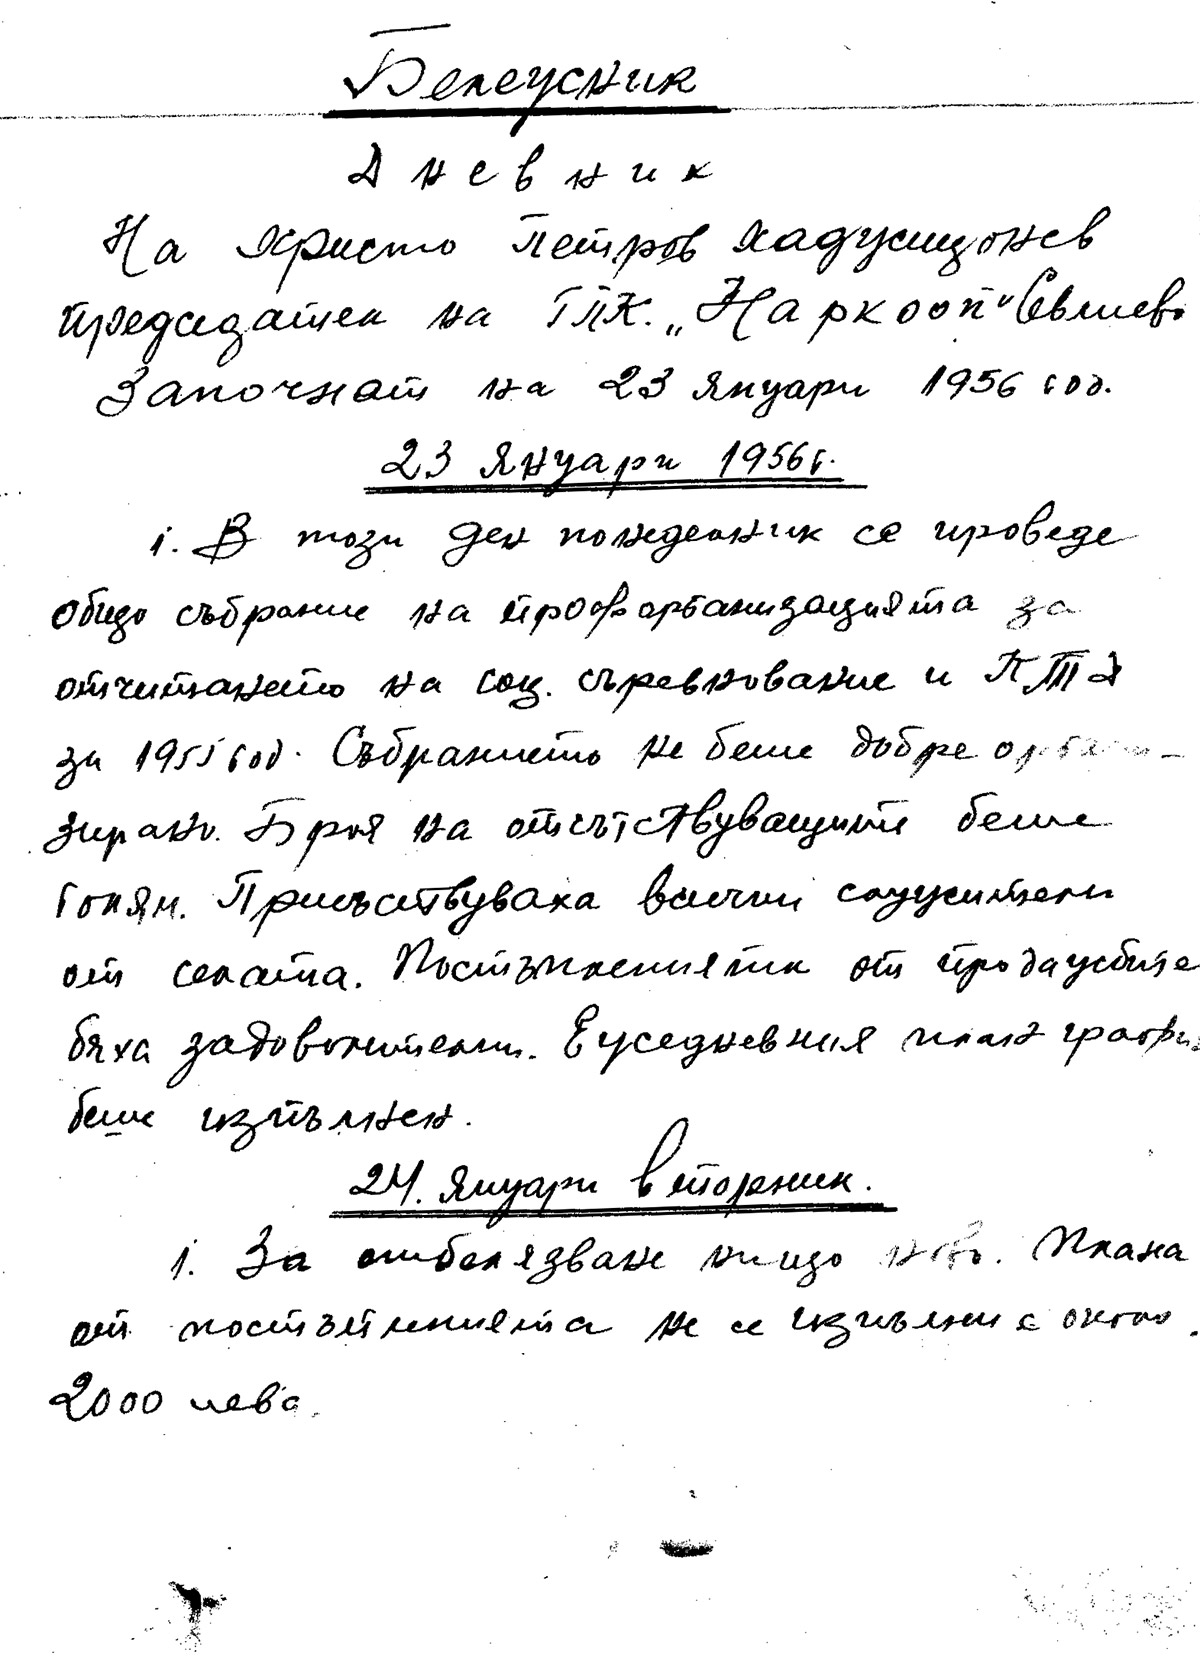 Бележник
Дневник
На Христо Петров Хаджицонев
председател на ГПК. „Наркооп" Севлиево
Започнат на 23 януари 1956 год.
23 януари 1956 г.
1. В този ден понеделник се проведе
общо събрание на профорганизацията за
отчитането на соц. съревнование и ПТД
за 1955 год. Събранието не беше добре органи-
зирано. Броя на отсътствуващите беше
голям. Присъствуваха всички служители
от селата. Постъпленията от продажбите
бяха задоволителни. Ежедневния план график
беше изпълнен.
24. януари вторник.
1. За отбелязване нищо ново. Плана
от постъпленията не се изпълни с около
2000 лева.